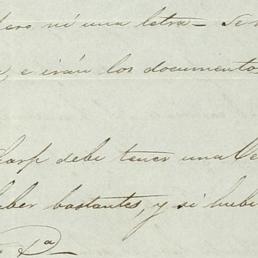 pero ni una letra_ Se
, e irán los documento
debe tener una
aber bastantes, y si hubie